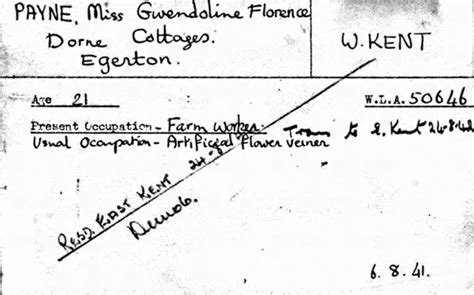 PAYNE, Miss Gwendoline Florence
Dorne Cottages.
Egerton.
W. KENT
Age 21
W.L.A. 50646
Present Occupation - Farm Worker.
Trans to E. Kent 24-8-42
Usual Occupation - Artificial Flower Veiner
RESD. EAST KENT 24-8-
Demob.
6.8.41.